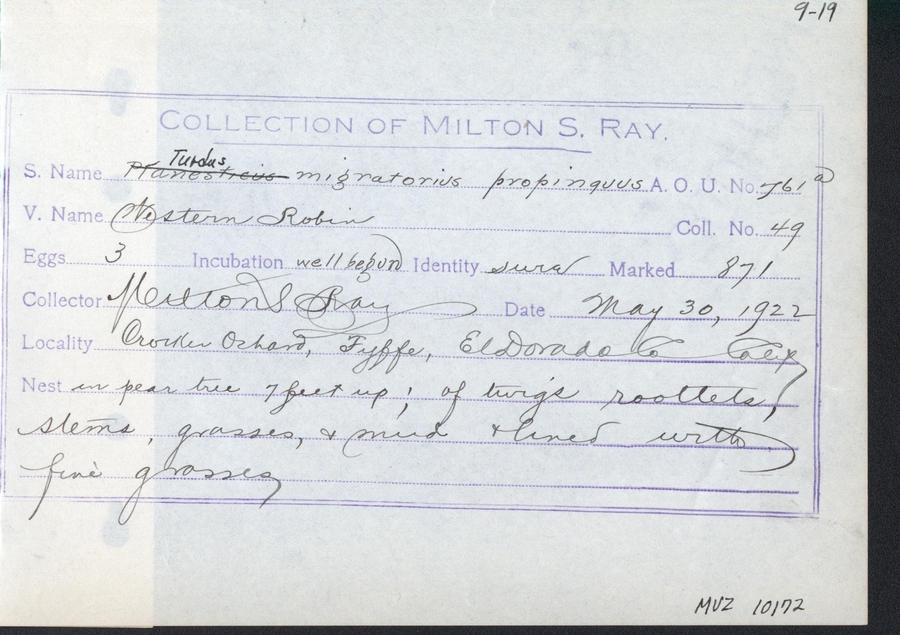 9-19
COLLECTION OF MILTON S. RAY.
Turdus
S. Name Planesticus migratorius propinquus A. O. U. No. 761a
V. Name Western Robin Coll. No. 49
Eggs 3 Incubation well begun Identity sure Marked 871
Collector Milton S Ray Date May 30, 1922
Locality Crocker Ochard, Fyffe, El Dorado Co Calif
Nest in pear tree 7 feet up; of twigs rootlets,
stems, grasses, & mud & lined with
fine grasses
MVZ 10172